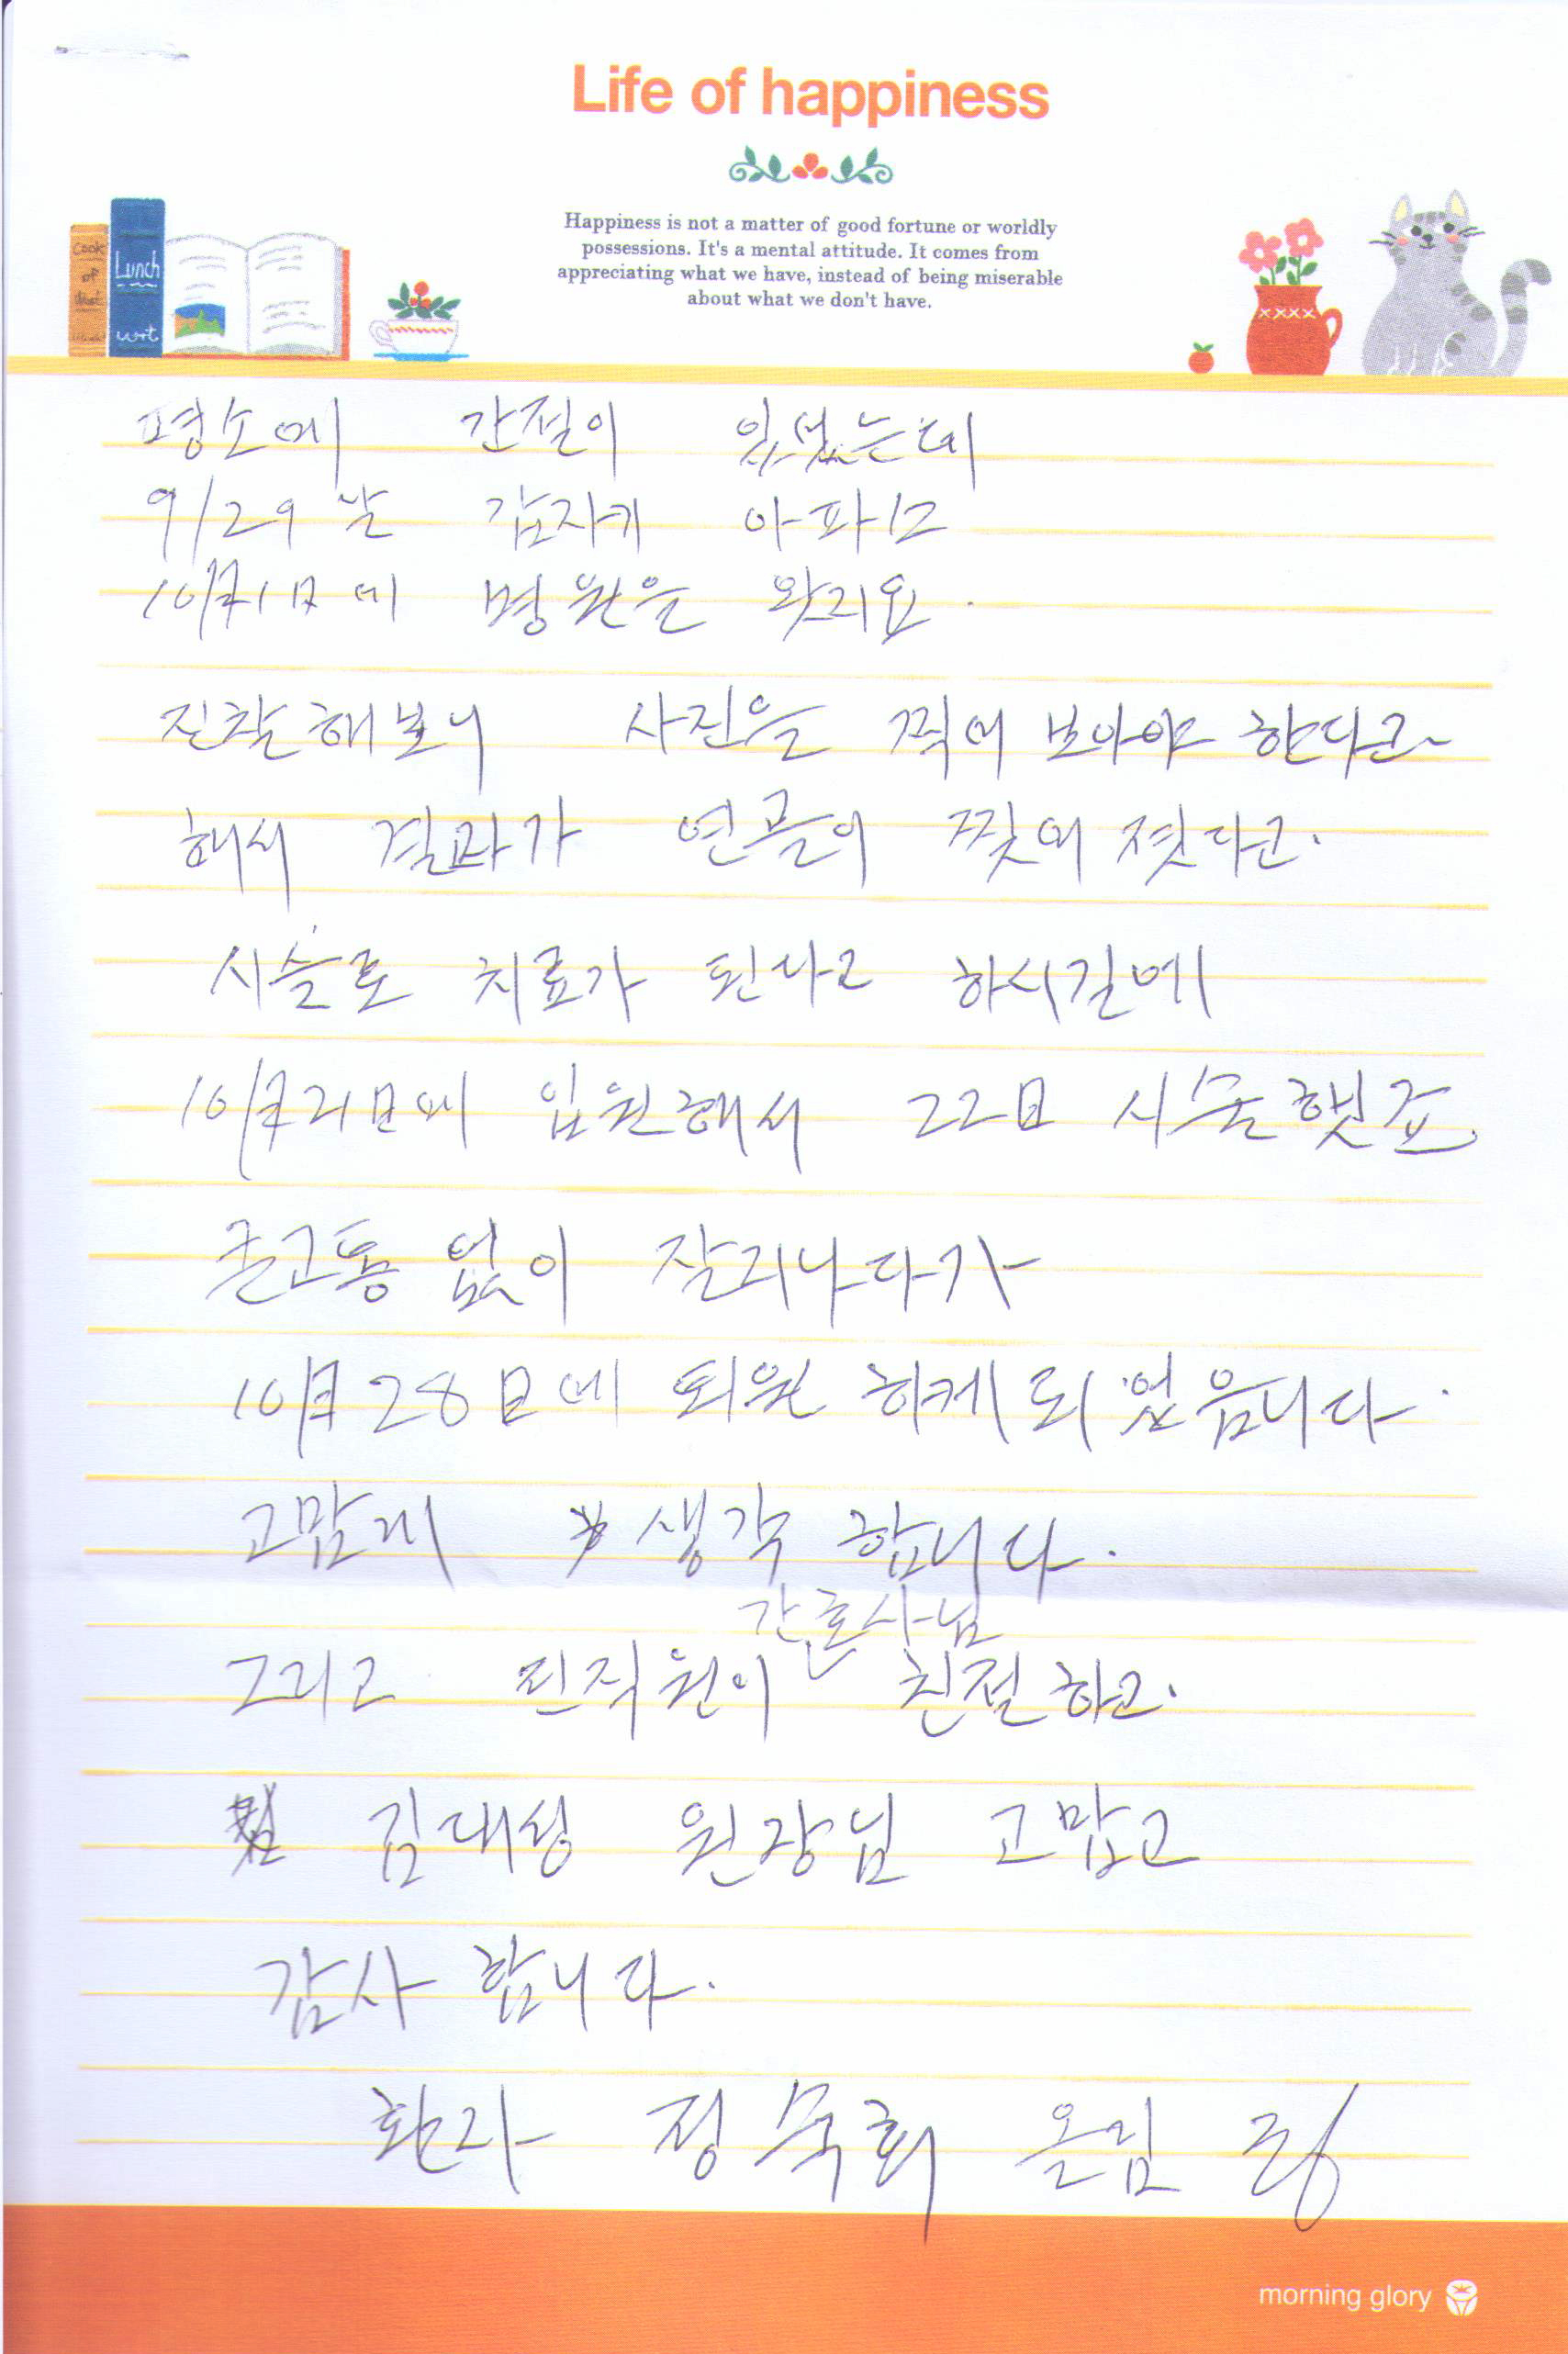 Life of happiness
Happiness is not a matter of good fortune or worldly
possessions. It's a mental attitude. It comes from
appreciating what we have, instead of being miserable
about what we don't have.
Cook
of
Lunch
평소에 간절이 있섰는데
9/29날 갑자키 아파고
10/月1日에 병원을 왓지요.
진찰해보니 사진을 찍어 보아야 한다고~
해서 결과가 연골이 찢어 젓다고.
시술로 치료가 된다고 하시길에
10/月21日에 입원해서 22日 시술햇고
큰고통 없이 잘지나다가
10/月28日에 퇴원 하게 되었읍니다.
고맙게 생각 합니다.
간호사님
그리고 직원이 친절하고.
김대성 원장님 고맙고
감사 합니다.
환자 정숙희 올림
morning glory